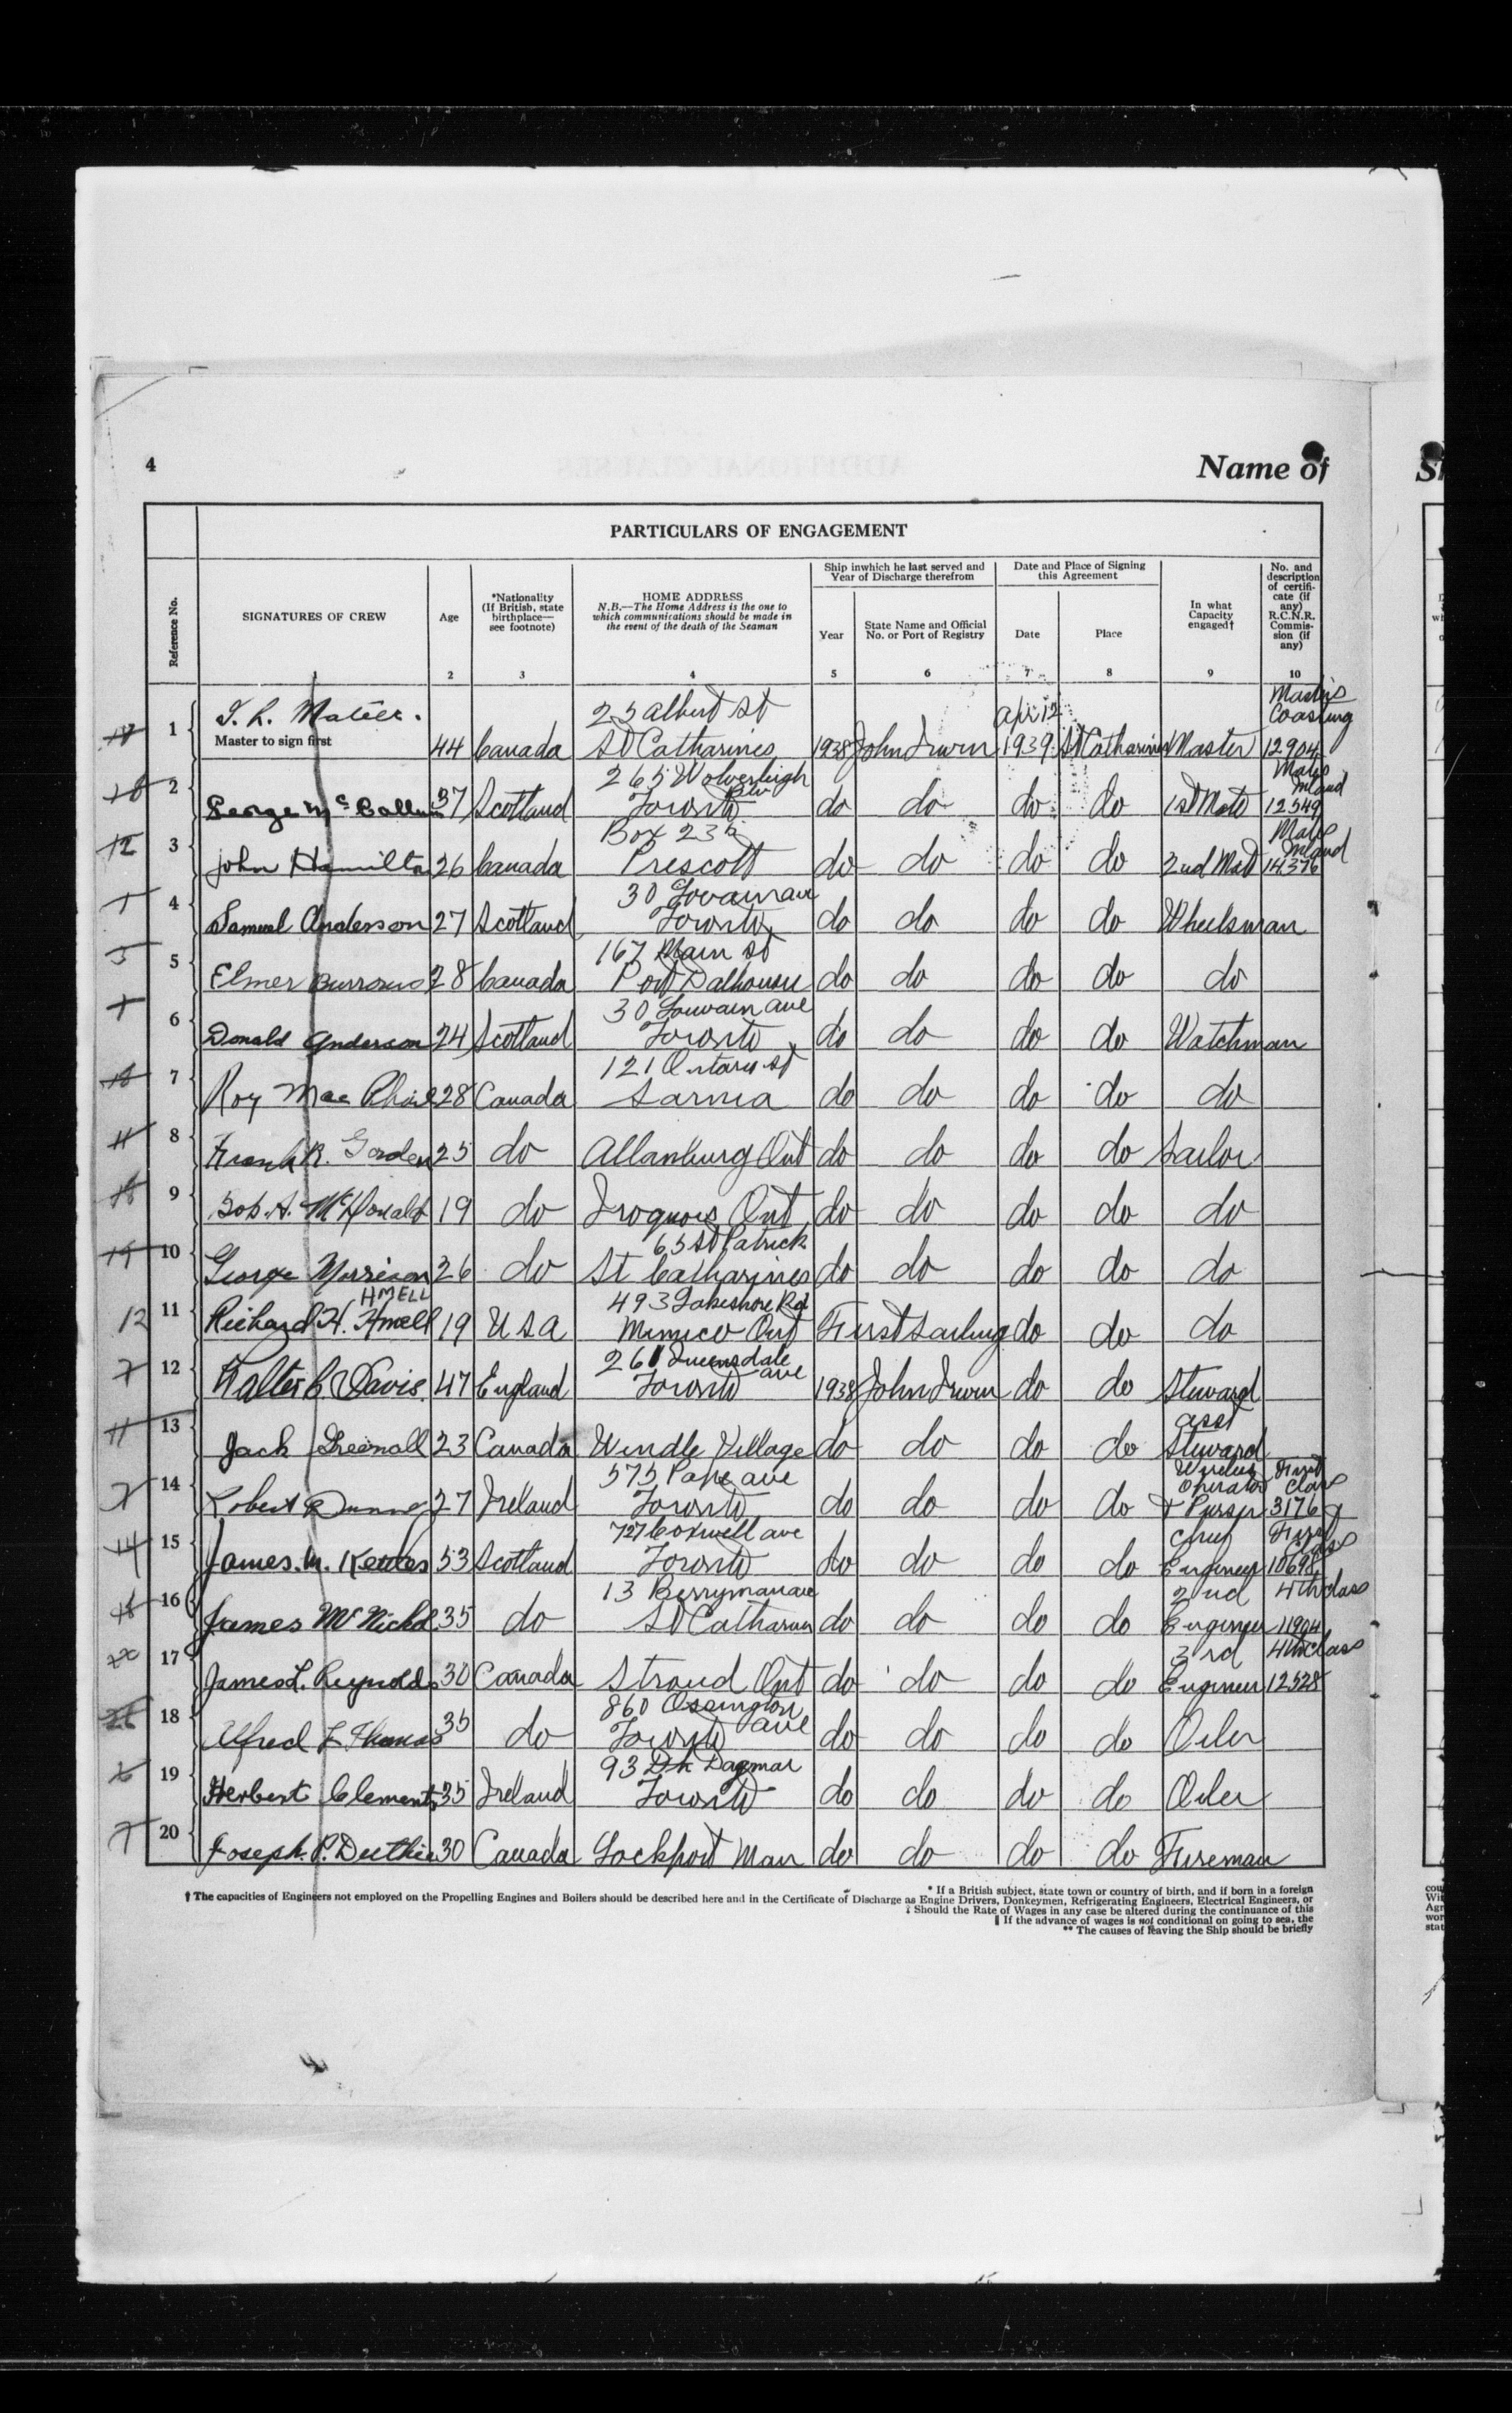 4
Name of
PARTICULARS OF ENGAGEMENT
Reference No.
SIGNATURES OF CREW
Age
*Nationality (If British, state birthplace— see footnote)
HOME ADDRESS
N.B.—The Home Address is the one to which communications should be made in the event of the death of the Seaman
Ship inwhich he last served and Year of Discharge therefrom
Year
State Name and Official No. or Port of Registry
Date and Place of Signing this Agreement
Date
Place
In what Capacity engaged†
No. and description of certificate (if any) R.C.N.R. Commission (if any)
1 2 3 4 5 6 7 8 9 10
25 Albert St Apr 12 Coasting
1 Master to sign first 44 Canada St Catharines 1938 John Irwin 1939 St Catharines Master 12904
265 Wolverleigh Blv Mate Inland
2 George McCallum 37 Scotland Toronto do do do do 1st Mate 12549
Box 235 Mate Inland
3 John Hamilton 26 Canada Prescott do do do do 2nd Mate 14376
30 Louvain ave
4 Samuel Anderson 27 Scotland Toronto do do do do Wheelsman
167 Main St
5 Elmer Burrows 28 Canada Port Dalhousie do do do do do
30 Louvain ave
6 Donald Anderson 24 Scotland Toronto do do do do Watchman
121 Ontario St
7 Roy MacPhail 28 Canada Sarnia do do do do do
8 Frank R. Gorden 25 do Allanburg Ont do do do do Sailor
9 Bob. A. McDonald 19 do Iroquois Ont do do do do do
65 St Patrick
10 George Morrison 26 do St Catharines do do do do do
HMELL 493 Lakeshore Rd
12 11 Richard H. Hmell 19 USA Mimico Ont First Sailing do do do
261 Queensdale ave
12 Walter C Davis 47 England Toronto 1938 John Irwin do do Steward
asst
13 Jack Greenall 23 Canada Windle Village do do do do Steward
575 Pape ave Wireless Operator First Class
14 Robert Dunne 27 Ireland Toronto do do do do + Purser 3176
727 Coxwell ave Chief First Class
15 James. M. Kettles 53 Scotland Toronto do do do do Engineer 10698
13 Berryman ave 2nd 4th class
16 James McNichol 35 do St Catharines do do do do Engineer 11904
3rd 4th class
17 James L. Reynolds 30 Canada Stroud Ont do do do do Engineer 12528
860 Ossington ave
18 Alfred L Thomas 35 do Toronto do do do do Oiler
93 Dagmar
19 Herbert Clements 35 Ireland Toronto do do do do Oiler
20 Joseph. P. Duthie 30 Canada Lockport Man do do do do Fireman
* If a British subject, state town or country of birth, and if born in a foreign
† The capacities of Engineers not employed on the Propelling Engines and Boilers should be described here and in the Certificate of Discharge as Engine Drivers, Donkeymen, Refrigerating Engineers, Electrical Engineers, or
‡ Should the Rate of Wages in any case be altered during the continuance of this
‖ If the advance of wages is not conditional on going to sea, the
** The causes of leaving the Ship should be briefly